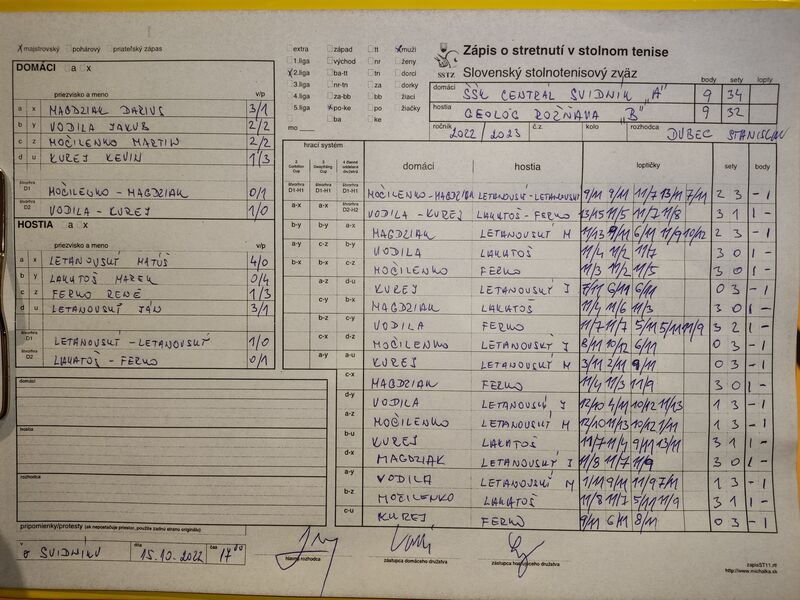 x majstrovský pohárový priateľský zápas
DOMÁCI a x
priezvisko a meno v/p
a x MAGDZIAK DARIUS 3/1
b y VODILA JAKUB 2/2
c z MOČILENKO MARTIN 2/2
d u KUREJ KEVIN 1/3
štvorhra D1 MOČILENKO - MAGDZIAK 0/1
štvorhra D2 VODILA - KUREJ 1/0
HOSTIA a x
priezvisko a meno v/p
a x LETANOVSKÝ MATÚŠ 4/0
b y LAKATOŠ MAREK 0/4
c z FERKO RENÉ 1/3
d u LETANOVSKÝ JÁN 3/1
štvorhra D1 LETANOVSKÝ - LETANOVSKÝ 1/0
štvorhra D2 LAKATOŠ - FERKO 0/1
domáci
hostia
rozhodca
pripomienky/protesty (ak nepostačuje priestor, použite zadnú stranu originálu)
v SVIDNÍKU dňa 15.10.2022 čas 17 00
extra západ tt x muži
1.liga východ nr ženy
x 2.liga ba-tt tn dorci
3.liga nr-tn za dorky
4.liga za-bb bb žiaci
5.liga x po-ke po žiačky
ba ke
mo
Zápis o stretnutí v stolnom tenise
SSTZ Slovenský stolnotenisový zväz
body sety lopty
domáci ŠŠK CENTRÁL SVIDNÍK „A" 9 34
hostia GEOLÓG ROŽŇAVA „B" 9 32
ročník 2022 / 2023 č.z. kolo rozhodca DUBEC STANISLAV
hrací systém domáci hostia loptičky sety body
štvorhra D1-H1 štvorhra D1-H1 štvorhra D1-H1 MOČILENKO-MAGDZIAK LETANOVSKÝ-LETANOVSKÝ 9/11 9/11 11/7 13/11 7/11 2 3 - 1
a-x a-x D2-H2 VODILA - KUREJ LAKATOŠ - FERKO 13/15 11/5 11/7 11/8 3 1 1 -
b-y b-y a-x MAGDZIAK LETANOVSKÝ M 11/13 9/11 6/11 11/9 10/12 2 3 - 1
a-y c-z b-y VODILA LAKATOŠ 11/4 11/2 11/7 3 0 1 -
b-x b-x c-z MOČILENKO FERKO 11/3 11/2 11/5 3 0 1 -
a-z d-u KUREJ LETANOVSKÝ J 7/11 6/11 6/11 0 3 - 1
c-y b-x MAGDZIAK LAKATOŠ 11/4 11/6 11/3 3 0 1 -
b-z c-y VODILA FERKO 11/7 11/7 5/11 5/11 11/9 3 2 1 -
c-x d-z MOČILENKO LETANOVSKÝ J 8/11 10/12 6/11 0 3 - 1
a-y a-u KUREJ LETANOVSKÝ M 3/11 2/11 9/11 0 3 - 1
c-x MAGDZIAK FERKO 11/4 11/3 11/9 3 0 1 -
d-y VODILA LETANOVSKÝ J 12/10 4/11 10/12 11/13 1 3 - 1
a-z MOČILENKO LETANOVSKÝ M 12/10 11/13 10/12 1/11 1 3 - 1
b-u KUREJ LAKATOŠ 11/7 11/4 9/11 13/11 3 1 1 -
d-x MAGDZIAK LETANOVSKÝ J 11/8 11/7 11/9 3 0 1 -
a-y VODILA LETANOVSKÝ M 1/11 9/11 11/9 7/11 1 3 - 1
b-z MOČILENKO LAKATOŠ 11/8 11/7 5/11 11/9 3 1 1 -
c-u KUREJ FERKO 9/11 6/11 8/11 0 3 - 1
hlavný rozhodca zástupca domáceho družstva zástupca hosťujúceho družstva
zapisST11.rtf
http://www.michalka.sk